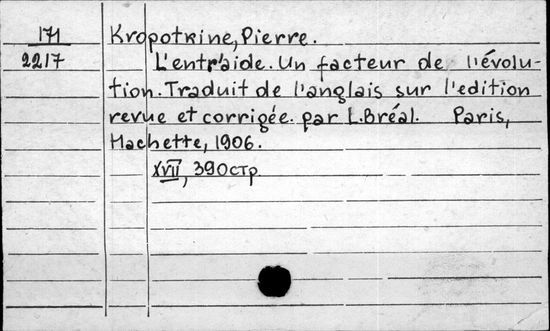 171 Kropotkine, Pierre.
2217 L'entr'aide. Un facteur de l'évolu-
tion. Traduit de l'anglais sur l'edition
revue et corrigée. par L.Bréal. Paris,
Hachette, 1906.
XVII, 390стр